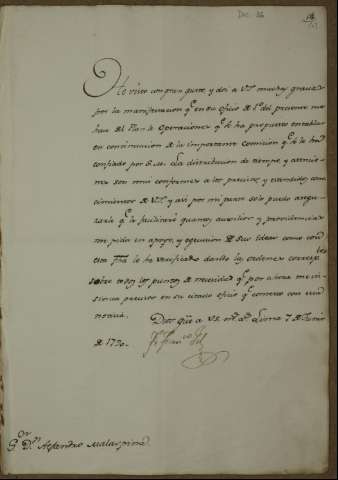 Doc. 26
He visto con gran gusto y doi a V.S. muchas gracias
por la manifestacion qe. en su oficio de 1º del presente me
hace del Plan de Operaciones qe. se ha propuesto entablar
en continuacion de la importante Comision qe. le ha
confiado por S.M. La distribucion de tiempo y atencio-
nes son mui conformes a los precisos, y extendidos cono-
cimientos de V.S. y asi por mi parte solo puedo asegu-
rarle qe. le facilitaré quantos auxilios y providencias
me pida en apoyo, y egecucion de sus ideas como con
esta fha. le ha verificado dando las ordenes corresptes.
sobre todos los puntos de necesidad qe. por ahora me in-
sinua precisos en su citado oficio qe. contexto con esta
noticia.
Dios gûe a VS. ms. as. Lima 7 de Junio
de 1790.
Fr. Franco. Gil
Sor. Dn. Alexandro Malaspina.